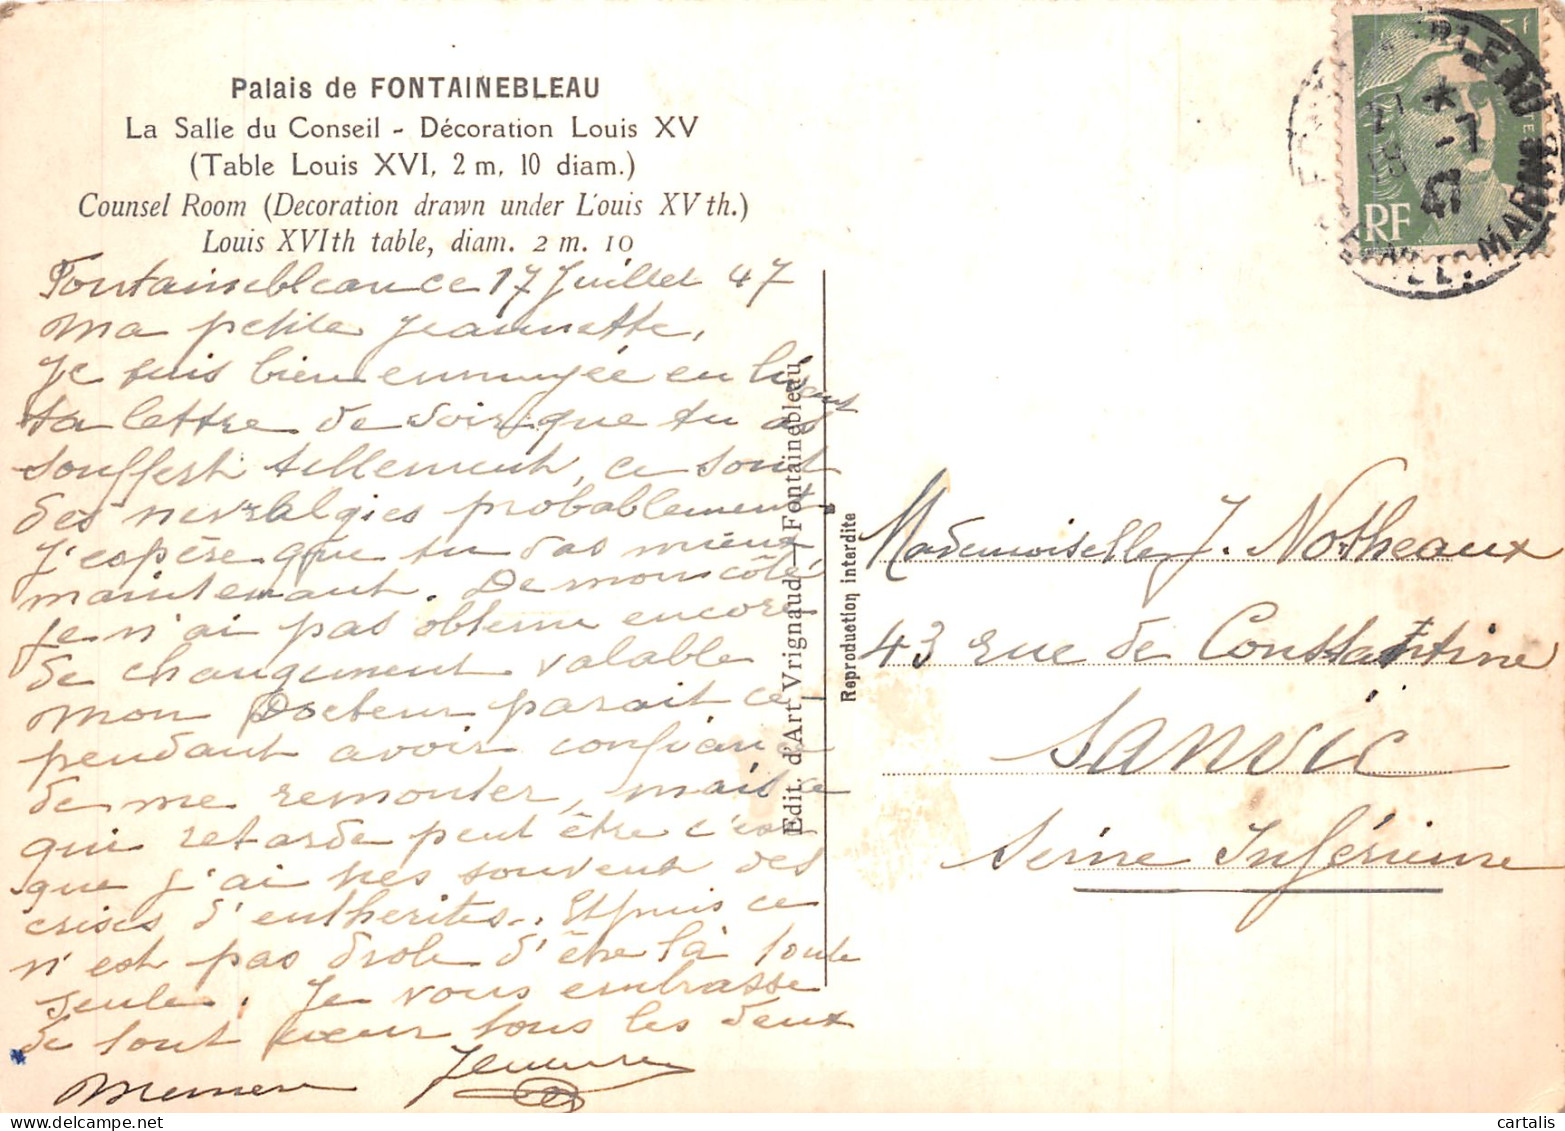 Palais de FONTAINEBLEAU
La Salle du Conseil - Décoration Louis XV
(Table Louis XVI, 2 m, 10 diam.)
Counsel Room (Decoration drawn under L'ouis XV th.)
Louis XVIth table, diam. 2 m. 10
Fontainebleau ce 17 Juillet 47
Ma petite Jeannette,
Je suis bien ennuyée en lisant
ta lettre de voir que tu as
souffert tellement, ce sont
des nevralgies probablement
J'espère que tu vas mieux
maintenant. De mon côté
je n'ai pas obtenu encore
de changement valable
Mon Docteur parait ce-
pendant avoir confiance
de me remonter, mais ce
qui retarde peut être c'est
que j'ai très souvent des
crises d'entherites. Et puis ce
n'est pas drole d'être là toute
seule. Je vous embrasse
de tout coeur tous les deux
Edit. d'Art Vrignaud - Fontainebleau
Reproduction interdite
5f
RF
FONTAINEBLEAU
SEINE-ET-MARNE
* -7
47
Mademoiselle J. Notheaux
43 rue de Constantine
SANVIC
Seine Inférieure
cartalis